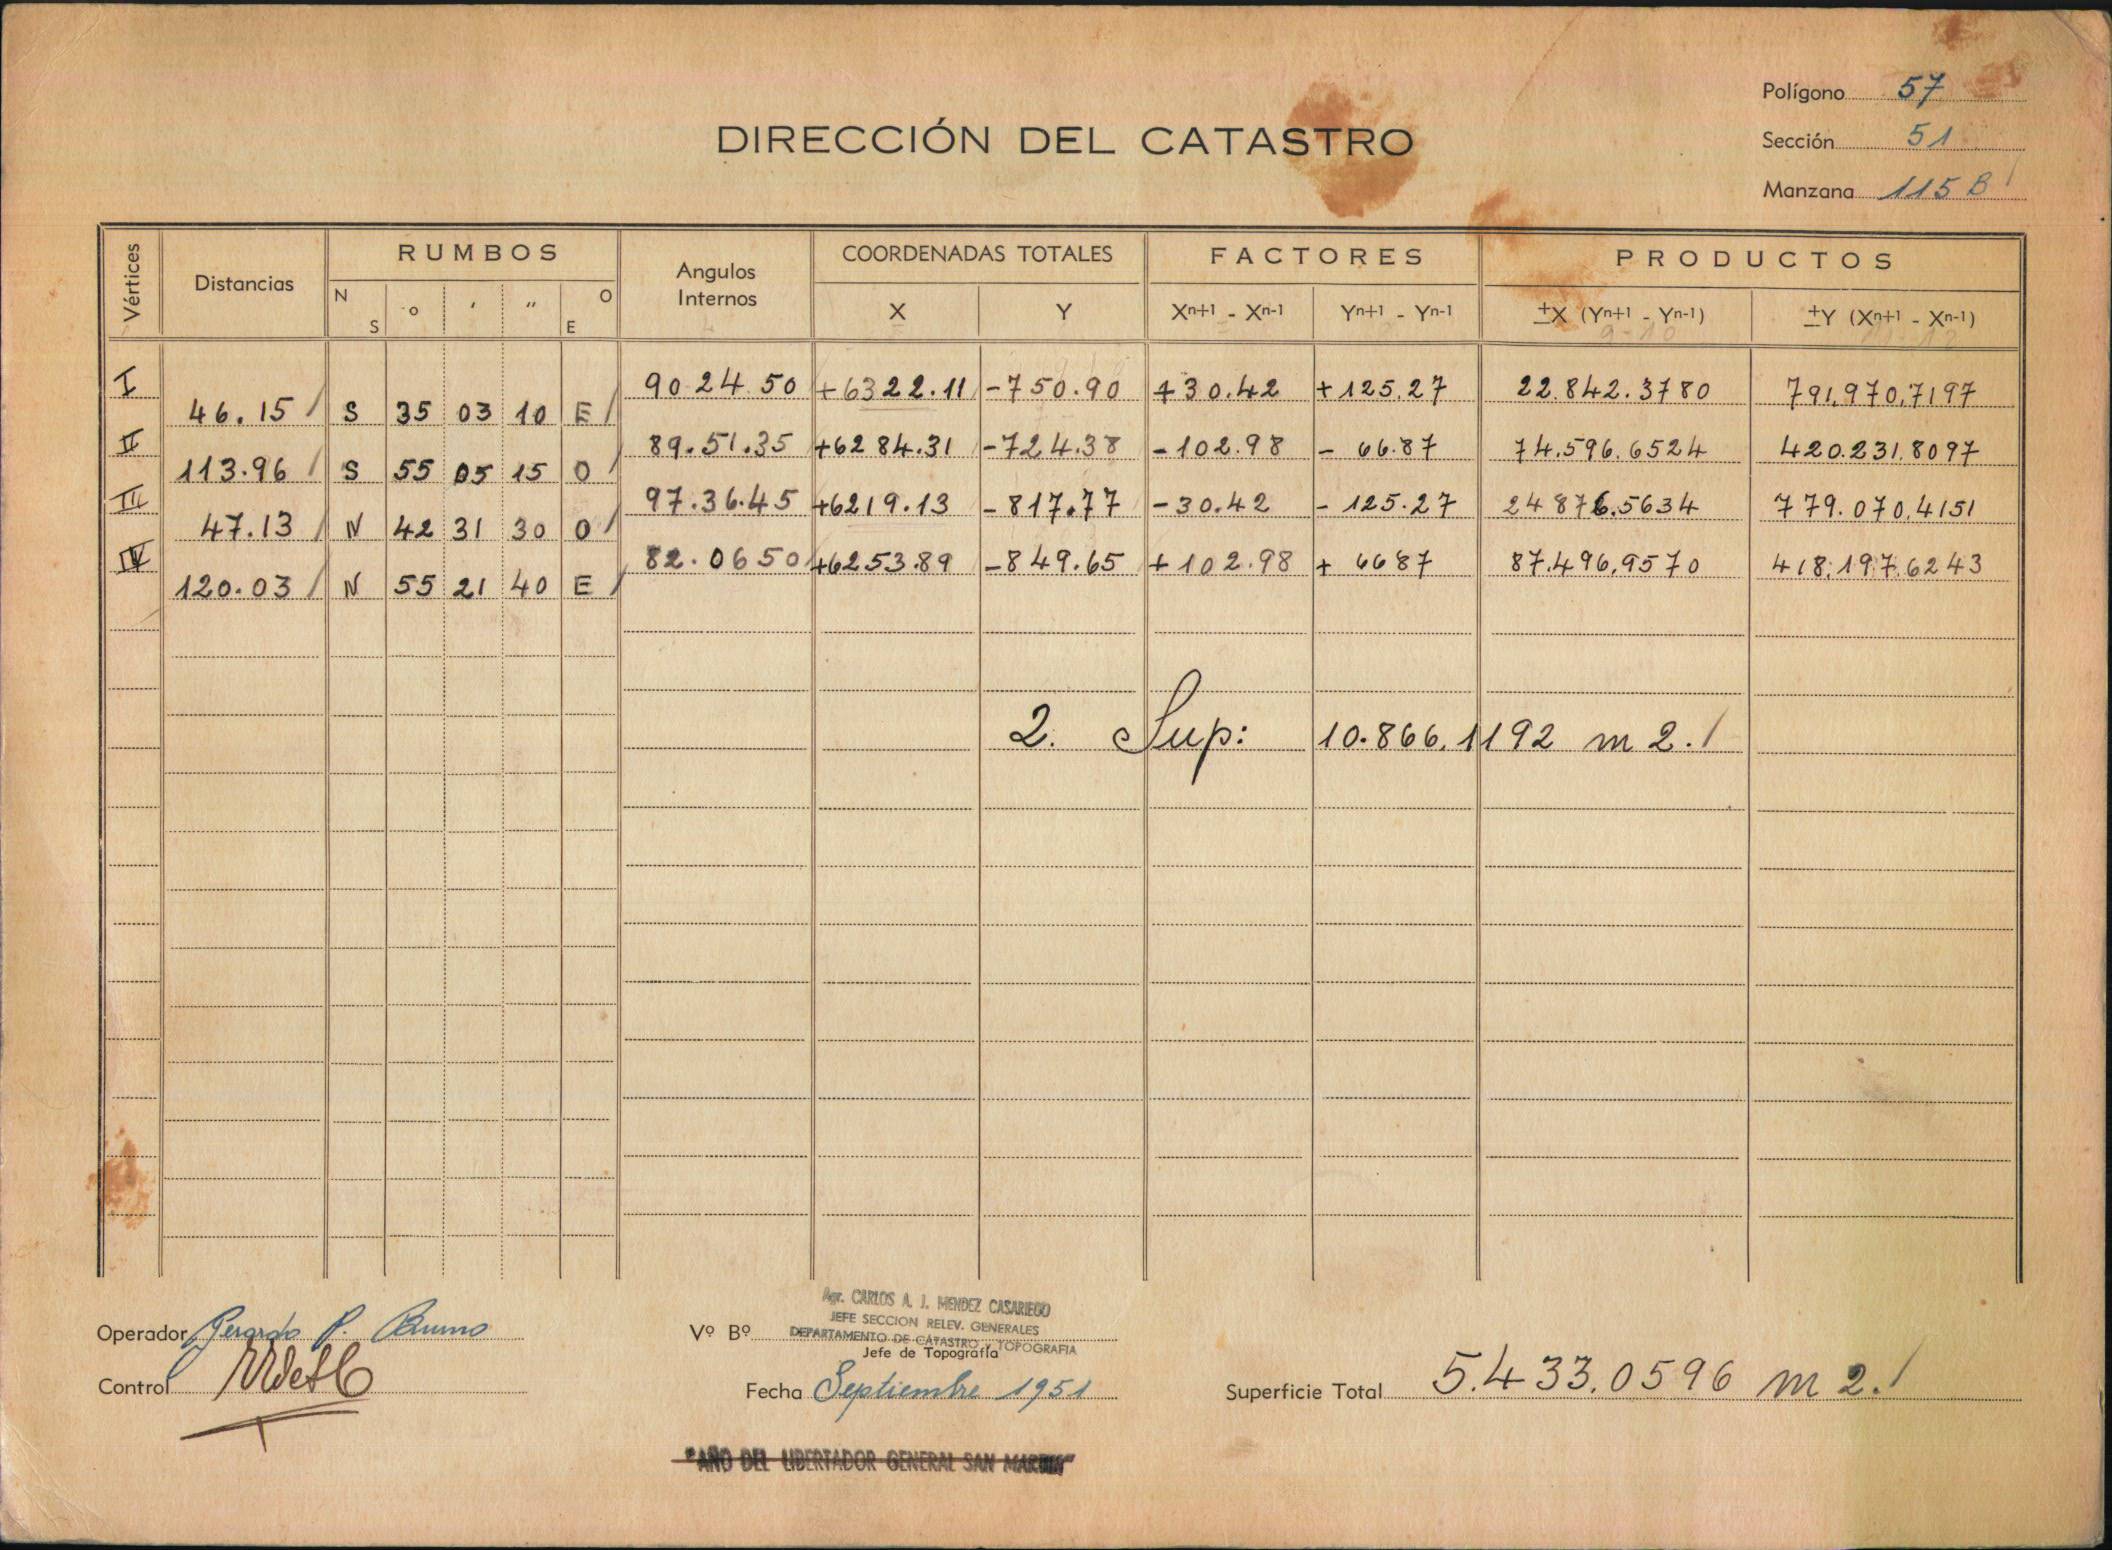 Polígono 57
DIRECCIÓN DEL CATASTRO
Sección 51
Manzana 115 B
Vértices Distancias RUMBOS Angulos Internos COORDENADAS TOTALES FACTORES PRODUCTOS
N S o ' " O E X Y Xn+1 - Xn-1 Yn+1 - Yn-1 ±X (Yn+1 - Yn-1) ±Y (Xn+1 - Xn-1)
I 90 24 50 +6322.11 -750.90 +30.42 +125.27 22.842.3780 791,970,7197
46.15 S 35 03 10 E
II 89.51.35 +6284.31 -724.38 -102.98 - 66.87 74.596.6524 420.231.8097
113.96 S 55 05 15 O
III 97.36.45 +6219.13 -817.77 -30.42 - 125.27 24876.5634 779.070.4151
47.13 N 42 31 30 O
IV 82.0650 +6253.89 -849.65 +102.98 + 6687 87.496.9570 418.197.6243
120.03 N 55 21 40 E
2. Sup: 10.866.1192 m 2.
Operador Gerardo P. Bruno
Control
Vº Bº
Agr. CARLOS A. J. MENDEZ CASARIEGO
JEFE SECCION RELEV. GENERALES
DEPARTAMENTO DE CATASTRO Y TOPOGRAFIA
Jefe de Topografía
Fecha Septiembre 1951
Superficie Total 5.433.0596 m 2.
"AÑO DEL LIBERTADOR GENERAL SAN MARTIN"